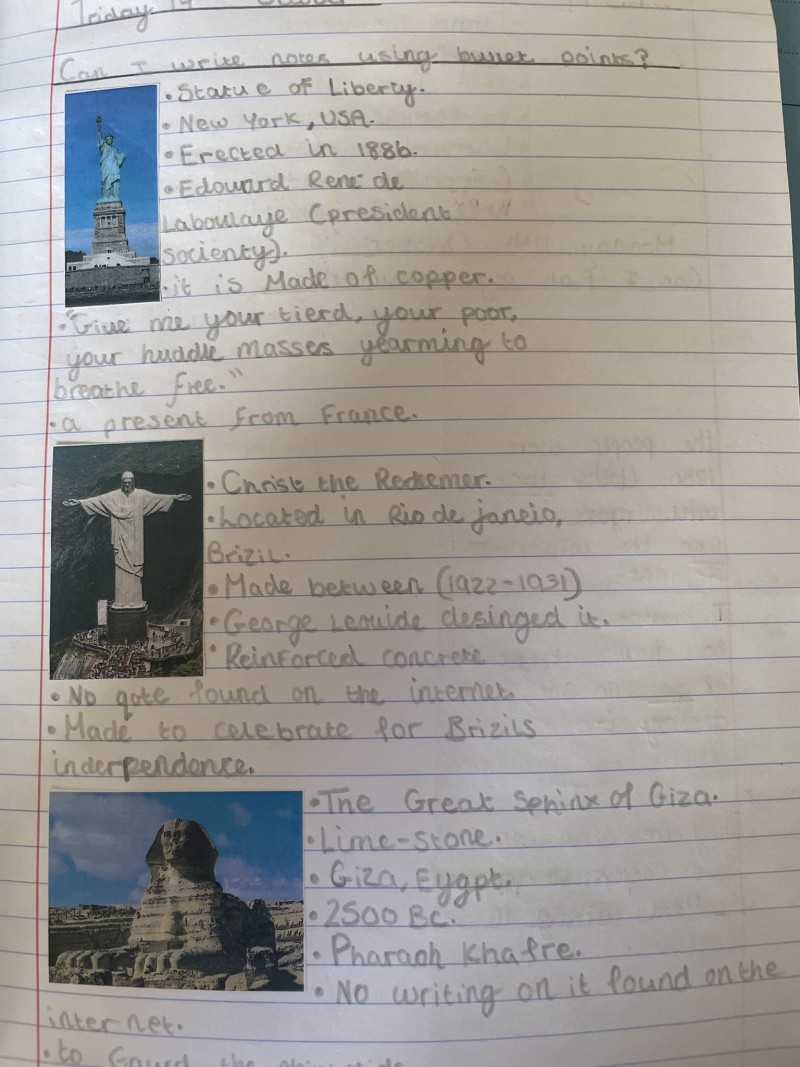 Friday
Can I write notes using bullet points?
• Statue of Liberty.
• New York, USA.
• Erected in 1886.
• Edouard René de
Laboulaye (president
socienty).
• it is Made of copper.
• "Give me your tierd, your poor,
your huddle masses yearming to
breathe free."
• a present from France.
• Christ the Redeemer.
• Located in Rio de janeio,
Brizil.
• Made between (1922-1931)
• George Lemide desinged it.
• Reinforced concrete
• No qote found on the internet.
• Made to celebrate for Brizils
inderpendence.
• The Great Sphinx of Giza.
• Lime-stone.
• Giza, Eygpt.
• 2500 BC.
• Pharaoh Khafre.
• No writing on it found on the
internet.
• to Gaurd the